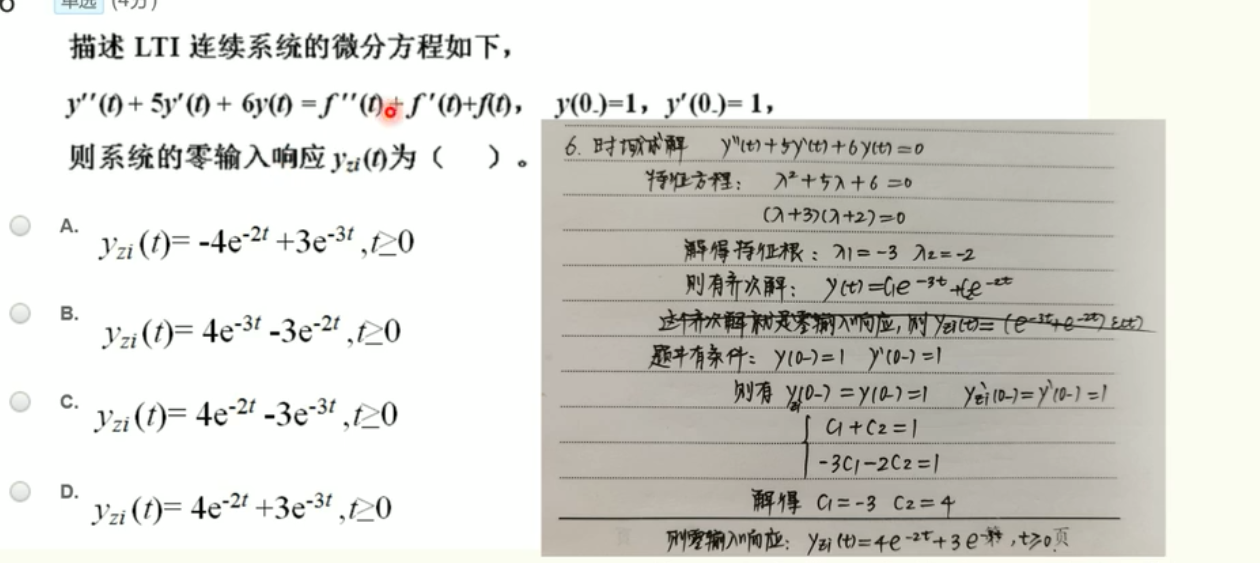 单选 (4分)
描述 LTI 连续系统的微分方程如下，
y''(t) + 5y'(t) + 6y(t) = f''(t)+ f'(t)+f(t)， y(0-)=1，y'(0-)= 1，
则系统的零输入响应 yzi(t)为（ ）。
A. yzi (t)= -4e^-2t +3e^-3t ,t≥0
B. yzi (t)= 4e^-3t -3e^-2t ,t≥0
C. yzi (t)= 4e^-2t -3e^-3t ,t≥0
D. yzi (t)= 4e^-2t +3e^-3t ,t≥0
6. 时域求解 y''(t)+5y'(t)+6y(t)=0
特征方程： λ²+5λ+6=0
(λ+3)(λ+2)=0
解得特征根：λ1=-3 λ2=-2
则有齐次解： y(t)=C1e^-3t+C2e^-2t
这个齐次解就是零输入响应，则 yzi(t)=(e^-3t+e^-2t)ε(t)
题中有条件：y(0-)=1 y'(0-)=1
则有 yzi(0-)=y(0-)=1 yzi'(0-)=y'(0-)=1
C1+C2=1
-3C1-2C2=1
解得 C1=-3 C2=4
则零输入响应：yzi(t)=4e^-2t+3e ,t≥0 页